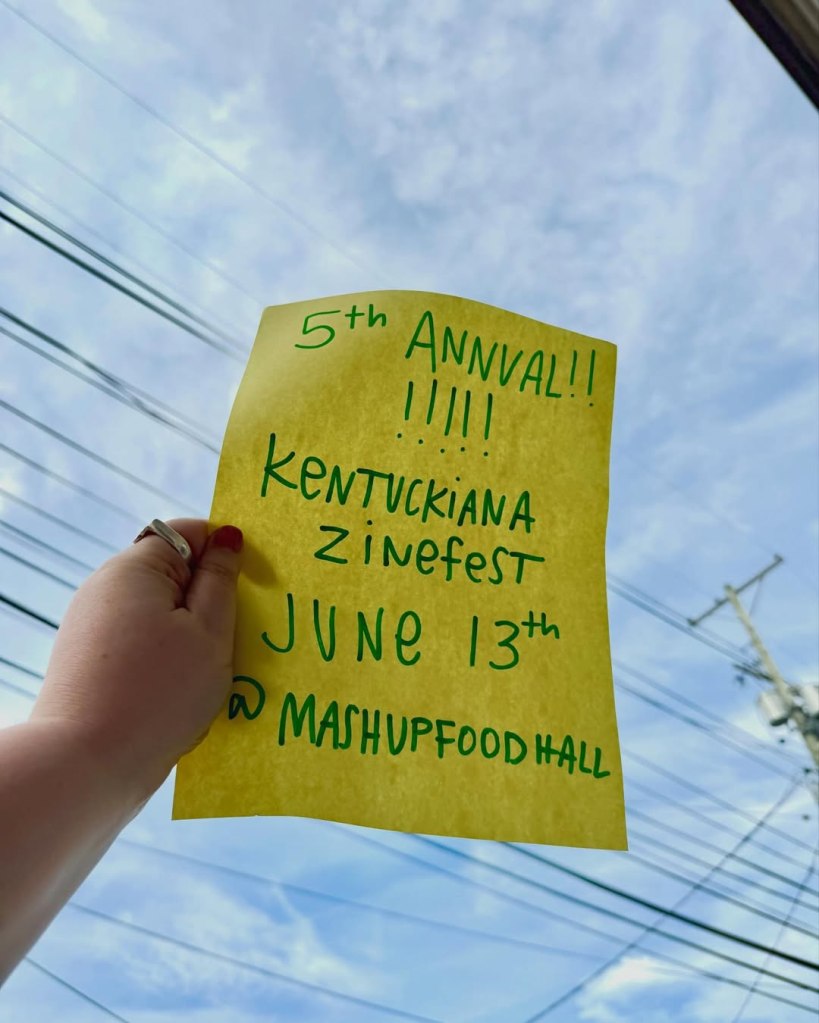 5th ANNUAL!!
!!!!!
KeNTUCKiANA
ZiNefesT
JUNe 13th
@ MASHUPFOODHALL